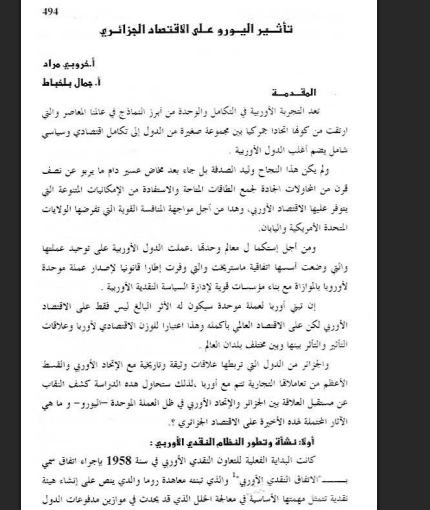 494
تأثير اليورو على الاقتصاد الجزائري
أ.خروبي مراد
أ. جمال بلخباط
المقدمة
تعد التجربة الأوربية في التكامل والوحدة من أبرز النماذج في عالمنا المعاصر والتي
ارتقت من كونها اتحادا جمركيا بين مجموعة صغيرة من الدول إلى تكامل اقتصادي وسياسي
شامل يضم أغلب الدول الأوربية .
ولم يكن هذا النجاح وليد الصدفة بل جاء بعد مخاض عسير دام ما يربو عن نصف
قرن من المحاولات الجادة لجمع الطاقات المتاحة والاستفادة من الإمكانيات المتنوعة التي
يتوفر عليها الاقتصاد الأوربي، وهدا من أجل مواجهة المنافسة القوية التي تفرضها الولايات
المتحدة الأمريكية واليابان.
ومن أجل إستكما ل معالم وحدتها ،عملت الدول الأوربية على توحيد عملتها
والتي وضعت أسسها اتفاقية ماستريخت والتي وفرت إطارا قانونيا لإصدار عملة موحدة
لأوروبا بالموازاة مع بناء مؤسسات قوية لإدارة السياسة النقدية الأوربية .
إن تبني أوربا لعملة موحدة سيكون له الأثر البالغ ليس فقط على الاقتصاد
الأوربي لكن على الاقتصاد العالمي بأكمله وهدا اعتبارا للوزن الاقتصادي لأوربا وعلاقات
التأثير والتأثر بينها وبين مختلف بلدان العالم .
والجزائر من الدول التي تربطها علاقات وثيقة وتاريخية مع الإتحاد الأوربي والقسط
الأعظم من تعاملاتها التجارية تتم مع أوربا ،لذلك ستحاول هده الدراسة كشف النقاب
عن مستقبل العلاقة بين الجزائر والإتحاد الأوربي في ظل العملة الموحدة –اليورو– و ما هي
الآثار المحتملة لهده الأخيرة على الاقتصاد الجزائري ؟.
أولا: نشأة وتطور النظام النقدي الأوربي :
كانت البداية الفعلية للتعاون النقدي الأوربي في سنة 1958 بإجراء اتفاق سمي
بــــــ"الاتفاق النقدي الأوربي"1 والذي تبنته معاهدة روما والدي ينص على إنشاء هيئة
نقدية تتمثل مهمتها الأساسية في معالجة الخلل الذي قد يحدث في موازين مدفوعات الدول